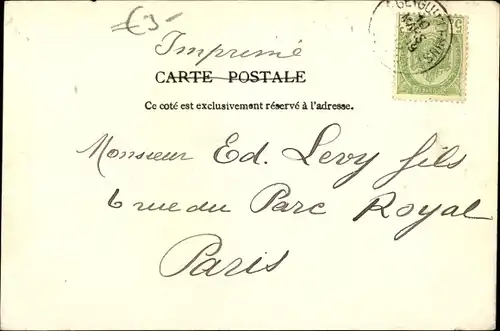 Imprimé
CARTE POSTALE
Ce coté est exclusivement réservé à l'adresse.
Monsieur Ed. Levy fils
6 rue du Parc Royal
Paris